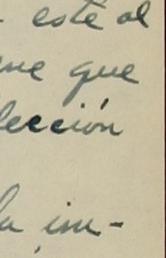 este al
me que
lección
la im-